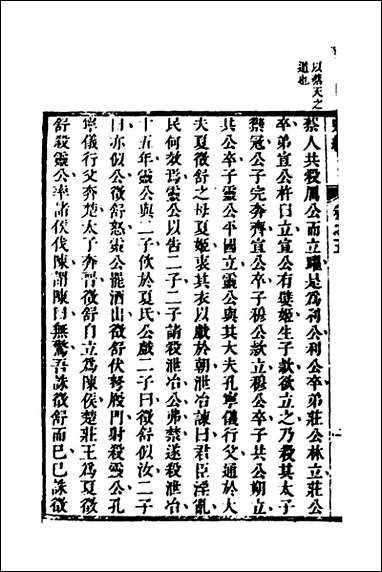 以蔡天之
道也
蔡人共殺厲公而立躍是爲利公利公卒弟莊公林立莊公
卒弟宣公杵臼立宣公有嬖姬生子款欲立之乃殺其太子
蔡冠公子完奔齊宣公卒子穆公款立穆公卒子共公朔立
共公卒子靈公平國立靈公與其大夫孔寧儀行父通於大
夫夏徵舒之母夏姬衷其衣以戲於朝泄冶諫曰君臣淫亂
民何效焉靈公以告二子二子請殺泄冶公弗禁遂殺泄冶
十五年靈公與二子飲於夏氏公戲二子曰徵舒似汝二子
曰亦似公徵舒怒靈公罷酒出徵舒伏弩廄門射殺靈公孔
寧儀行父奔楚太子奔晉徵舒自立爲陳侯楚莊王爲夏徵
舒殺靈公率諸侯伐陳謂陳曰無驚吾誅徵舒而已已誅徵